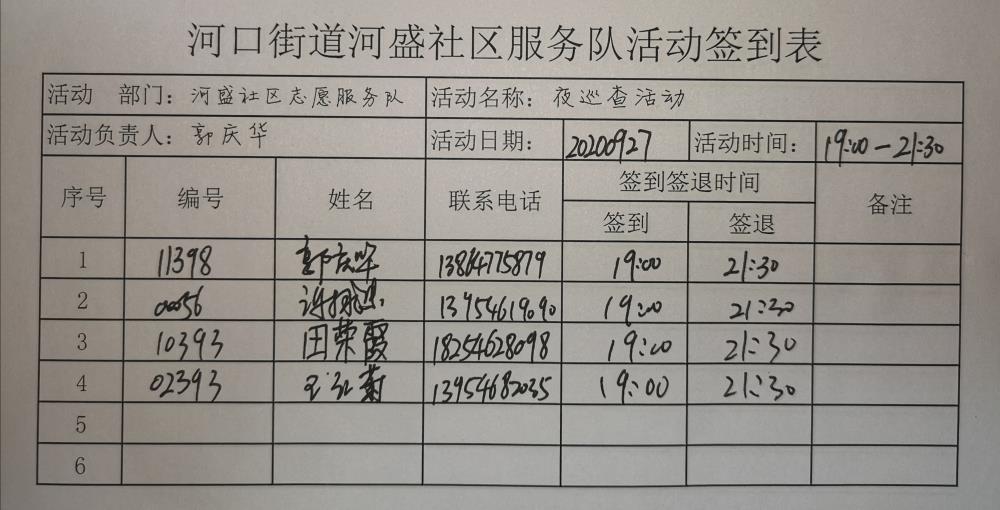 河口街道河盛社区服务队活动签到表
活动 部门：河盛社区志愿服务队 活动名称：夜巡查活动
活动负责人：郭庆华 活动日期：20200927 活动时间：19:00-21:30
序号 编号 姓名 联系电话 签到签退时间 备注
签到 签退
1 11398 郭庆华 13864775879 19:00 21:30
2 00056 13954619090 19:00 21:30
3 10393 田荣霞 18254628098 19:00 21:30
4 02393 13954682035 19:00 21:30
5
6